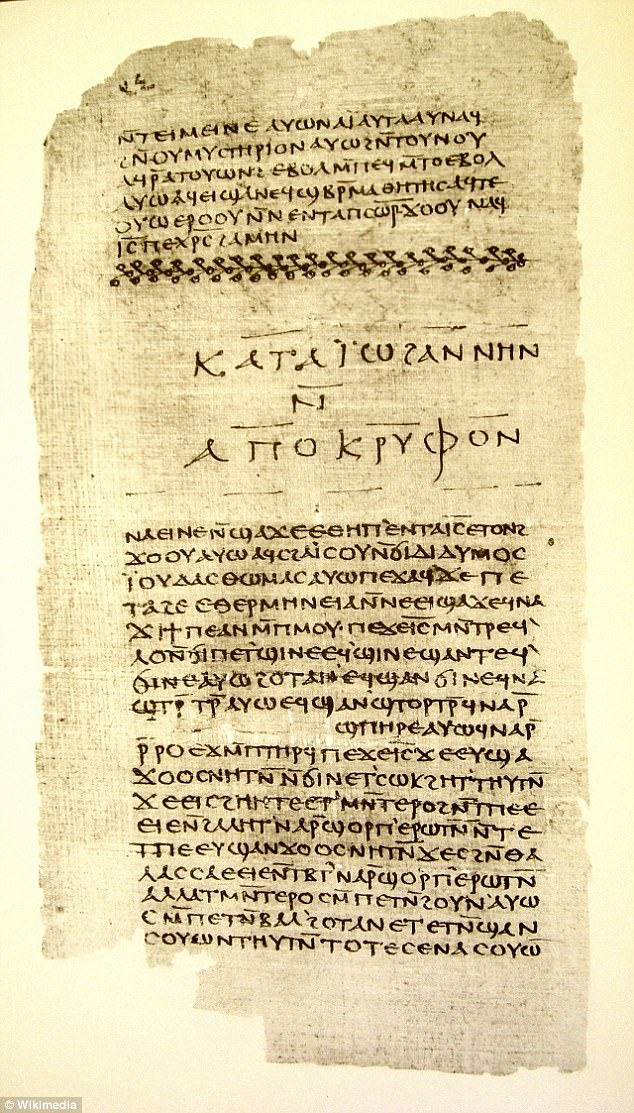 ⲛ̄ⲧⲉⲓⲙⲉⲓⲛⲉ ⲁⲩⲱⲛⲁⲓ̈ⲁⲩⲧⲁⲁⲩⲛⲁϥ
ϩⲛ̄ⲟⲩⲙⲩⲥⲧⲏⲣⲓⲟⲛⲁⲩⲱϩⲛ̄ⲧⲟⲩⲛⲟⲩ
ⲁϥⲣ̄ⲁⲧⲟⲩⲱⲛϩⲉⲃⲟⲗⲙ̄ⲡⲉϥⲙ̄ⲧⲟⲉⲃⲟⲗ
ⲁⲩⲱⲁϥⲉⲓϣⲁⲛⲉϥϣⲃⲣ̄ⲙⲁⲑⲏⲧⲏⲥⲁϥⲧⲉ
ⲟⲩⲱⲉⲣⲟⲟⲩⲛ̄ⲛⲉⲛⲧⲁⲡⲥⲱⲣ̄ϫⲟⲟⲩⲛⲁϥ
ⲓ̅ⲥ̅ⲡⲉⲭⲣ̅ⲥ̅ϩⲁⲙⲏⲛ
ⲕⲁⲧⲁⲓ̈ⲱϩⲁⲛⲛⲏⲛ
ⲛ̄
ⲁⲡⲟⲕⲣⲩⲫⲟⲛ
ⲛⲁⲉⲓⲛⲉⲛ̄ϣⲁϫⲉⲉⲑⲏⲡ`ⲉⲛⲧⲁⲓ̅ⲥ̅ⲉⲧⲟⲛϩ
ϫⲟⲟⲩⲁⲩⲱⲁϥⲥϩⲁⲓ̈ⲥⲟⲩⲛ̄ϭⲓⲇⲓⲇⲩⲙⲟⲥ
ⲓ̈ⲟⲩⲇⲁⲥⲑⲱⲙⲁⲥⲁⲩⲱⲡⲉϫⲁϥϫⲉⲡⲉ
ⲧⲁϩⲉⲉⲑⲉⲣⲙⲏⲛⲉⲓⲁⲛ̄ⲛⲉⲉⲓϣⲁϫⲉϥⲛⲁ
ϫⲓϯⲡⲉⲁⲛⲙ̄ⲡⲙⲟⲩ·ⲡⲉϫⲉⲓ̅ⲥ̅ⲙⲛ̄ⲧⲣⲉϥ`
ⲗⲟⲛ̄ϭⲓⲡⲉⲧ`ϣⲓⲛⲉⲉϥϣⲓⲛⲉϣⲁⲛⲧⲉϥ`
ϭⲓⲛⲉⲁⲩⲱϩⲟⲧⲁⲛ`ⲉϥϣⲁⲛϭⲓⲛⲉϥⲛⲁ
ϣⲧⲣ̄ⲧⲣ̄ⲁⲩⲱⲉϥϣⲁⲛϣⲧⲟⲣⲧⲣ̄ϥⲛⲁⲣ̄
ϣⲡⲏⲣⲉⲁⲩⲱϥⲛⲁⲣ̄
ⲣ̄ⲣⲟⲉϫⲙ̄ⲡⲧⲏⲣϥⲡⲉϫⲉⲓ̅ⲥ̅ϫⲉⲉⲩϣⲁ
ϫⲟⲟⲥⲛⲏⲧⲛ̄ⲛ̄ϭⲓⲛⲉⲧ`ⲥⲱⲕϩⲏⲧ`ⲧⲏⲩⲧⲛ̄
ϫⲉⲉⲓⲥϩⲏⲏⲧⲉⲉⲧ`ⲙⲛ̄ⲧⲉⲣⲟϩⲛ̄ⲧⲡⲉⲉ
ⲉⲓⲉⲛ̄ϩⲁⲗⲏⲧ`ⲛⲁⲣ̄ϣⲟⲣⲡ`ⲉⲣⲱⲧⲛ̄ⲛ̄ⲧⲉ
ⲧⲡⲉⲉⲩϣⲁⲛϫⲟⲟⲥⲛⲏⲧⲛ̄ϫⲉⲥϩⲛ̄ⲑⲁ
ⲗⲁⲥⲥⲁⲉⲉⲓⲉⲛ̄ⲧⲃⲧ`ⲛⲁⲣ̄ϣⲟⲣⲡ`ⲉⲣⲱⲧⲛ̄
ⲁⲗⲗⲁⲧⲙⲛ̄ⲧⲉⲣⲟⲥⲙ̄ⲡⲉⲧⲛ̄ϩⲟⲩⲛ`ⲁⲩⲱ
ⲥⲙ̄ⲡⲉⲧⲛ̄ⲃⲁⲗ`ϩⲟⲧⲁⲛⲉⲧⲉⲧⲛ̄ϣⲁⲛ
ⲥⲟⲩⲱⲛⲧⲏⲩⲧⲛ̄ⲧⲟⲧⲉⲥⲉⲛⲁⲥⲟⲩⲱ̄
© Wikimedia